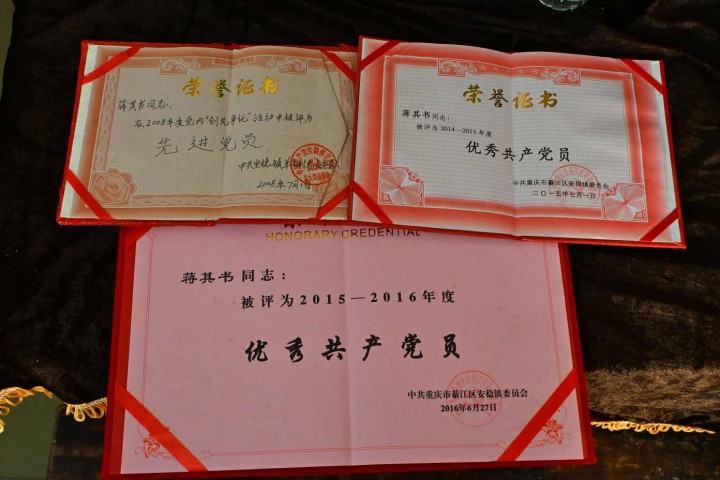 荣誉证书
蒋其书同志:
在2008年度党内"创先争优"活动中被评为
先进党员
中共安稳镇
2008年7月1日
荣誉证书
蒋其书同志:
被评为2014—2015年度
优秀共产党员
中共重庆市綦江区安稳镇委员会
二〇一五年七月一日
HONORARY CREDENTIAL
蒋其书同志:
被评为2015—2016年度
优秀共产党员
中共重庆市綦江区安稳镇委员会
2016年6月27日